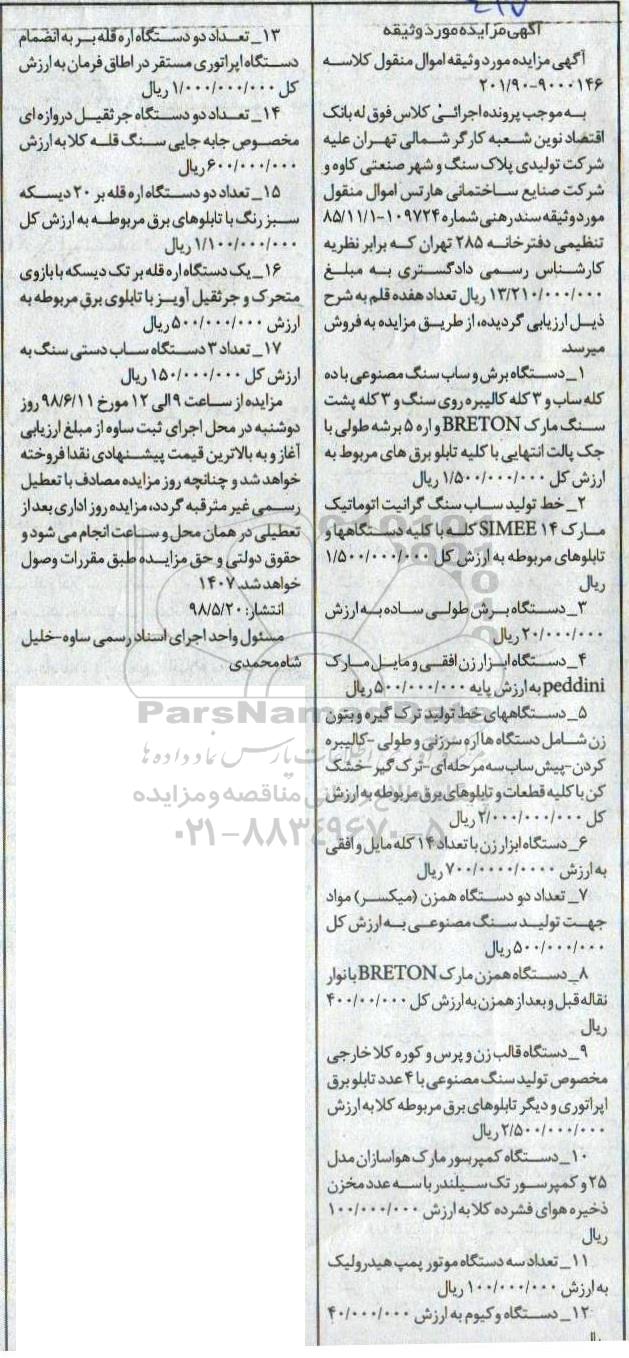 ۲۱۷
آگهی مزایده مورد وثیقه
آگهی مزایده مورد وثیقه اموال منقول کلاسه
۲۰۱/۹۰-۹۰۰۰۱۴۶
به موجب پرونده اجرائی کلاس فوق له بانک
اقتصاد نوین شعبه کارگر شمالی تهران علیه
شرکت تولیدی پلاک سنگ و شهر صنعتی کاوه و
شرکت صنایع ساختمانی هارتس اموال منقول
مورد وثیقه سند رهنی شماره ۱۰۹۷۲۴-۸۵/۱۱/۱
تنظیمی دفترخانه ۲۸۵ تهران که برابر نظریه
کارشناس رسمی دادگستری به مبلغ
۱۳/۲۱۰/۰۰۰/۰۰۰ ریال تعداد هفده قلم به شرح
ذیل ارزیابی گردیده، از طریق مزایده به فروش
میرسد.
۱_ دستگاه برش و ساب سنگ مصنوعی با ده
کله ساب و ۳ کله کالیبره روی سنگ و ۳ کله پشت
سنگ مارک BRETON و اره ۵ برشه طولی با
جک پالت انتهایی با کلیه تابلو برق های مربوط به
ارزش کل ۱/۵۰۰/۰۰۰/۰۰۰ ریال
۲_ خط تولید ساب سنگ گرانیت اتوماتیک
مارک SIMEE ۱۴ کله با کلیه دستگاهها و
تابلوهای مربوطه به ارزش کل ۱/۵۰۰/۰۰۰/۰۰۰
ریال
۳_ دستگاه برش طولی ساده به ارزش
۲۰/۰۰۰/۰۰۰ ریال
۴_ دستگاه ابزار زن افقی و مایل مارک
peddini به ارزش پایه ۵۰۰/۰۰۰/۰۰۰ ریال
۵_ دستگاههای خط تولید ترک گیره و بتون
زن شامل دستگاه ها اره سرزنی و طولی -کالیبره
کردن-پیش ساب سه مرحله ای-ترک گیر-خشک
کن با کلیه قطعات و تابلوهای برق مربوطه به ارزش
کل ۲/۰۰۰/۰۰۰/۰۰۰ ریال
۶_ دستگاه ابزار زن با تعداد ۱۴ کله مایل و افقی
به ارزش ۷۰۰/۰۰۰۰/۰۰۰۰ ریال
۷_ تعداد دو دستگاه همزن (میکسر) مواد
جهت تولید سنگ مصنوعی به ارزش کل
۵۰۰/۰۰۰/۰۰۰ ریال
۸_ دستگاه همزن مارک BRETON با نوار
نقاله قبل و بعد از همزن به ارزش کل ۴۰۰/۰۰/۰۰۰
ریال
۹_ دستگاه قالب زن و پرس و کوره کلا خارجی
مخصوص تولید سنگ مصنوعی با ۴ عدد تابلو برق
اپراتوری و دیگر تابلوهای برق مربوطه کلا به ارزش
۲/۵۰۰/۰۰۰/۰۰۰ ریال
۱۰_ دستگاه کمپرسور مارک هواسازان مدل
۲۵ و کمپرسور تک سیلندر با سه عدد مخزن
ذخیره هوای فشرده کلا به ارزش ۱۰۰/۰۰۰/۰۰۰
ریال
۱۱_ تعداد سه دستگاه موتور پمپ هیدرولیک
به ارزش ۱۰۰/۰۰۰/۰۰۰ ریال
۱۲_ دستگاه وکیوم به ارزش ۴۰/۰۰۰/۰۰۰
ریال
۱۳_ تعداد دو دستگاه اره قله بر به انضمام
دستگاه اپراتوری مستقر در اطاق فرمان به ارزش
کل ۱/۰۰۰/۰۰۰/۰۰۰ ریال
۱۴_ تعداد دو دستگاه جرثقیل دروازه ای
مخصوص جابه جایی سنگ قله کلا به ارزش
۶۰۰/۰۰۰/۰۰۰ ریال
۱۵_ تعداد دو دستگاه اره قله بر ۲۰ دیسکه
سبز رنگ با تابلوهای برق مربوطه به ارزش کل
۱/۱۰۰/۰۰۰/۰۰۰ ریال
۱۶_ یک دستگاه اره قله بر تک دیسکه با بازوی
متحرک و جرثقیل آویز با تابلوی برق مربوطه به
ارزش ۵۰۰/۰۰۰/۰۰۰ ریال
۱۷_ تعداد ۳ دستگاه ساب دستی سنگ به
ارزش کل ۱۵۰/۰۰۰/۰۰۰ ریال
مزایده از ساعت ۹ الی ۱۲ مورخ ۹۸/۶/۱۱ روز
دوشنبه در محل اجرای ثبت ساوه از مبلغ ارزیابی
آغاز و به بالاترین قیمت پیشنهادی نقدا فروخته
خواهد شد و چنانچه روز مزایده مصادف با تعطیل
رسمی غیر مترقبه گردد، مزایده روز اداری بعد از
تعطیلی در همان محل و ساعت انجام می شود و
حقوق دولتی و حق مزایده طبق مقررات وصول
خواهد شد. ۱۴۰۷
انتشار: ۹۸/۵/۲۰
مسئول واحد اجرای اسناد رسمی ساوه-خلیل
شاه محمدی
ParsNamadData
۰۲۱-۸۸۳۴۹۶۷۰-۵